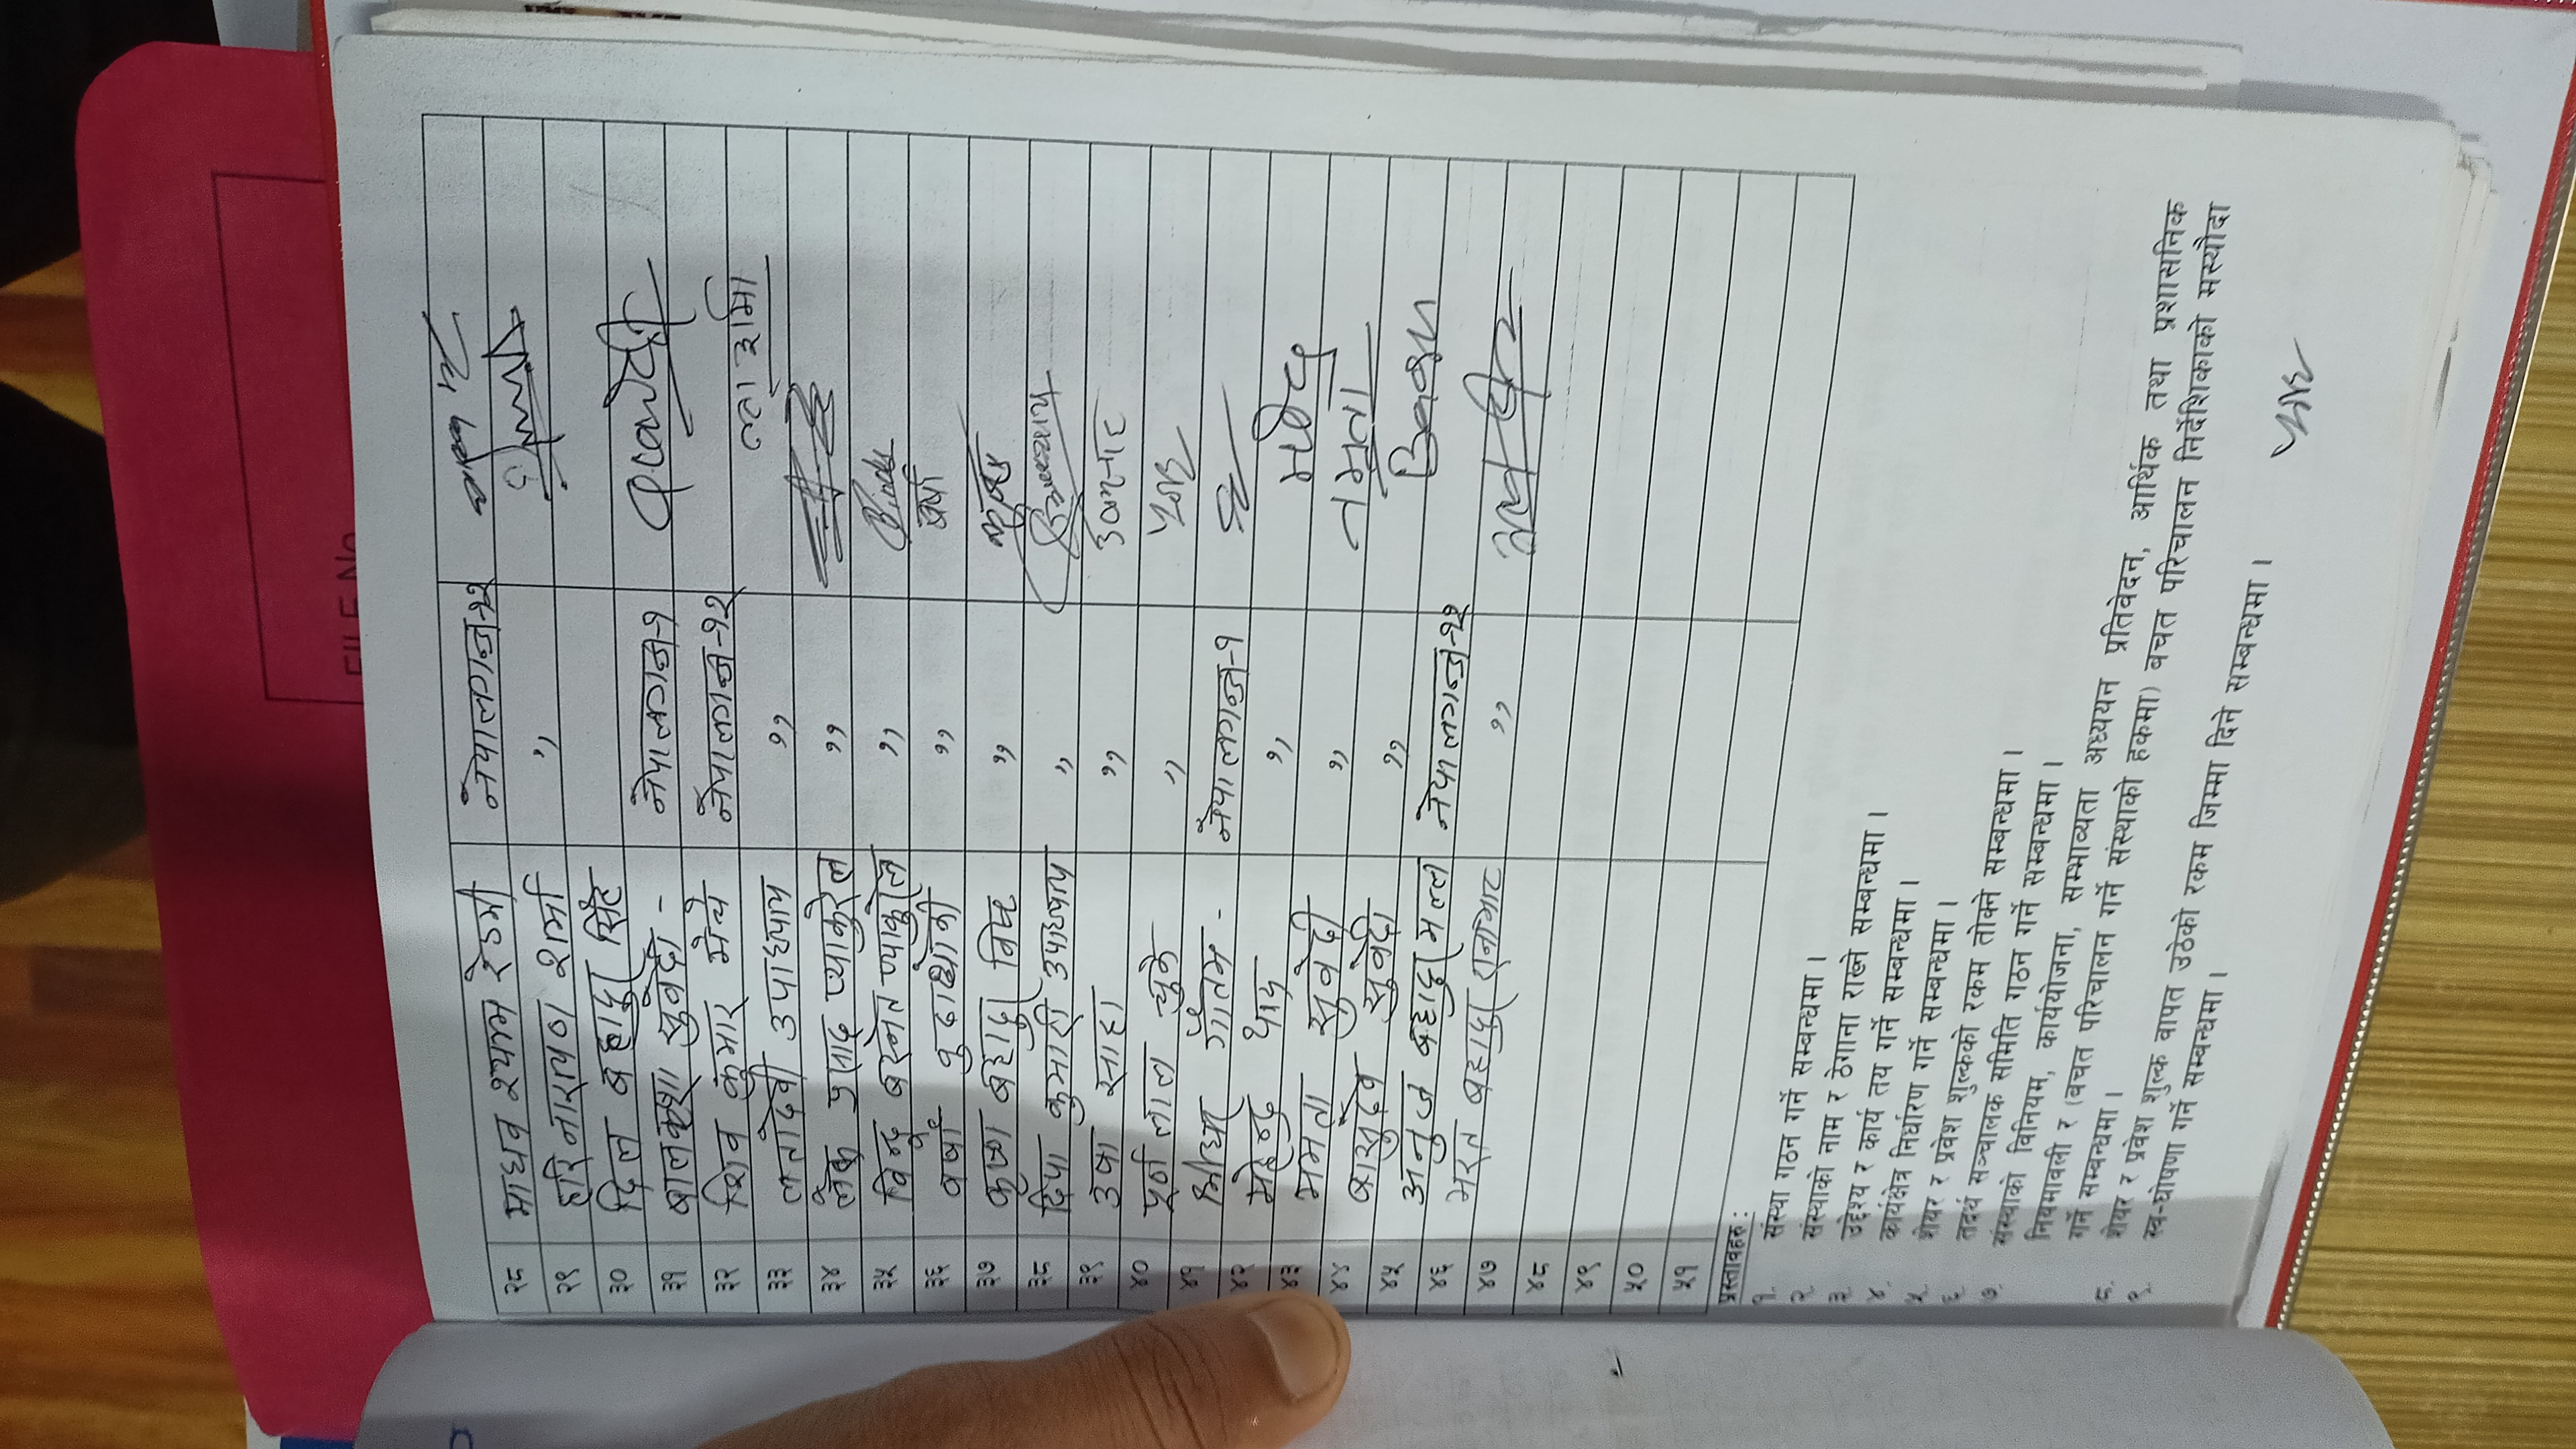 FILE No
२८ माधव श्याम रेग्मी नेपालगन्ज-१२
२९ हरि नारायण शर्मा ,,
३० दिल बहादुर सिंह
३१ बालकृष्ण सुवेदी - नेपालगन्ज-१
३२ शिव कुमार मेचे नेपालगन्ज-१२
३३ लतादेवी उपाध्याय ,, लता शर्मा
३४ लेक प्रसाद प्याकुरेल ,,
३५ विन्दु बस्नेत प्याकुरेल ,, Bindu
३६ वर्षा वुढाथोकी ,, बर्षा
३७ कृष्ण बहादुर विष्ट ,,
३८ दिपा कुमारी उपाध्याय ,,
३९ उषा साहा ,,
४० पूर्ण लाल चुके ,,
४१ श्रीधर गौतम - नेपालगन्ज-१
४२ महेन्द्र थापा ,, महेन्द्र
४३ ममता सुवेदी ,, ममता
४४ बासुदेव सुवेदी ,, Basu
४५ अनुज बहादुर मल्ल नेपालगन्ज-१२
४६ भरत बहादुर रानाभाट ,,
४७
४८
४९
५०
५१
प्रस्तावहरु :
१. संस्था गठन गर्ने सम्बन्धमा ।
२. संस्थाको नाम र ठेगाना राख्ने सम्बन्धमा ।
३. उद्देश्य र कार्य तय गर्ने सम्बन्धमा ।
४. कार्यक्षेत्र निर्धारण गर्ने सम्बन्धमा ।
५. शेयर र प्रवेश शुल्कको रकम तोक्ने सम्बन्धमा ।
६. तदर्थ सञ्चालक समिति गठन गर्ने सम्बन्धमा ।
७. संस्थाको विनियम, कार्ययोजना, सम्भाव्यता अध्ययन प्रतिवेदन, आर्थिक तथा प्रशासनिक
नियमावली र (बचत परिचालन गर्ने संस्थाको हकमा) बचत परिचालन निर्देशिकाको मस्यौदा
गर्ने सम्बन्धमा ।
८. शेयर र प्रवेश शुल्क वापत उठेको रकम जिम्मा दिने सम्बन्धमा ।
९. स्व-घोषणा गर्ने सम्बन्धमा ।